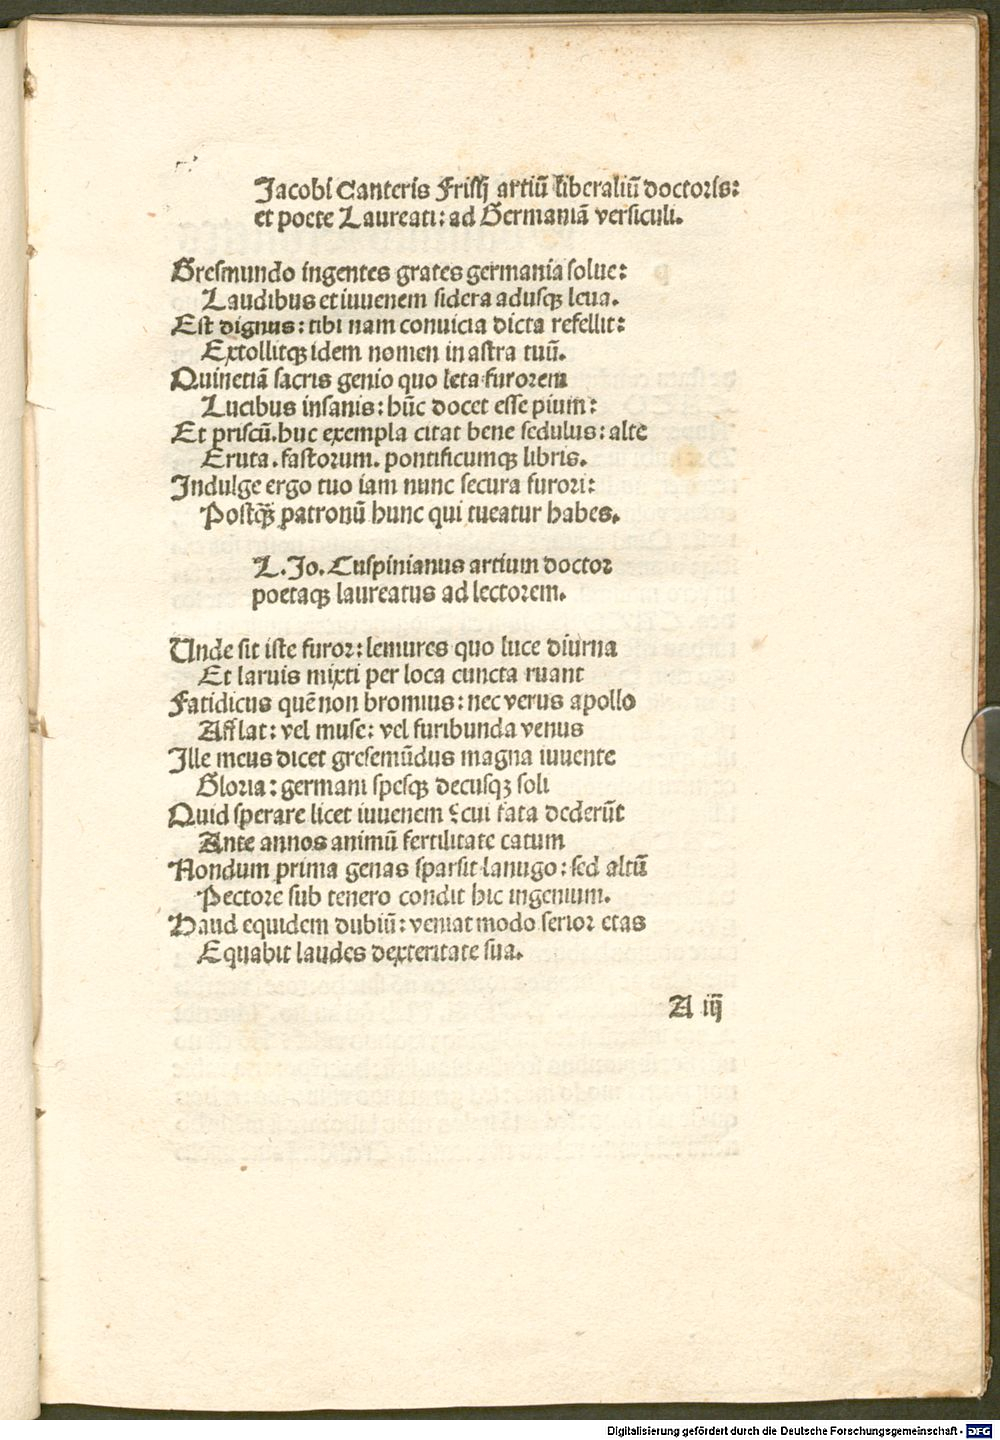 Jacobi Canteris Frisij artiū liberaliū doctoris:
et poete Laureati: ad Germaniā versiculi.
Gresmundo ingentes grates germania solue:
Laudibus et iuuenem sidera adusqꝫ leua.
Est dignus: tibi nam conuicia dicta refellit:
Extollitqꝫ idem nomen in astra tuū.
Quinetiā sacris genio quo leta furorem
Lucibus insanis: hūc docet esse pium:
Et priscū. huc exempla citat bene sedulus: alte
Eruta. fastorum. pontificumqꝫ libris.
Indulge ergo tuo iam nunc secura furori:
Postqꝫ̄ patronū hunc qui tueatur habes.
L. Jo. Cuspinianus artium doctor
poetaqꝫ laureatus ad lectorem.
Unde sit iste furor: lemures quo luce diurna
Et laruis mixti per loca cuncta ruant
Fatidicus quē non bromius: nec verus apollo
Afflat: vel muse: vel furibunda venus
Ille meus dicet gresemūdus magna iuuente
Gloria: germani spesqꝫ decusqꝫ soli
Quid sperare licet iuuenem ⁊ cui fata dederūt
Ante annos animū fertilitate catum
Nondum prima genas sparsit lanugo: sed altū
Pectore sub tenero condit hic ingenium.
Haud equidem dubiū: veniat modo serior etas
Equabit laudes dexteritate sua.
A iij
Digitalisierung gefördert durch die Deutsche Forschungsgemeinschaft - DFG